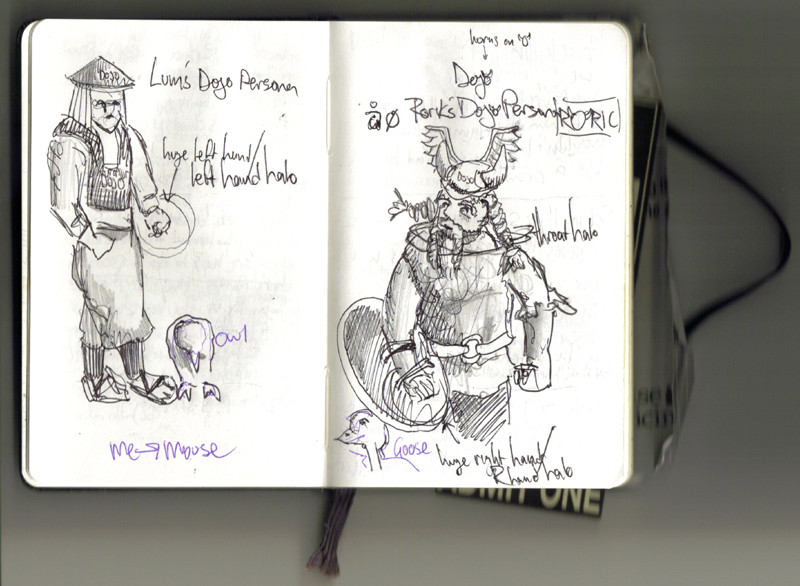 DOJO
Lum's Dojo Persona
huge left hand/
left hand halo
DOJO
owl
me → Mouse
horns on
Dojo
Rorik's Dojo Persona
RORIC
DOJO
throat halo
Goose
huge right hand/
R hand halo
ADMIT ONE